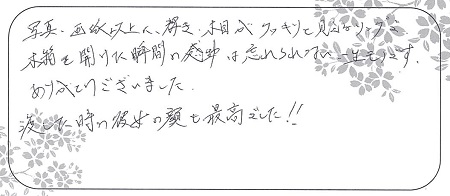 写真、画像以上に、輝き、木目がクッキリと見えるリングで、
木箱を開けた瞬間の感動は忘れられない一生モノです。
ありがとうございました。
渡した時の彼女の顔も最高でした!!